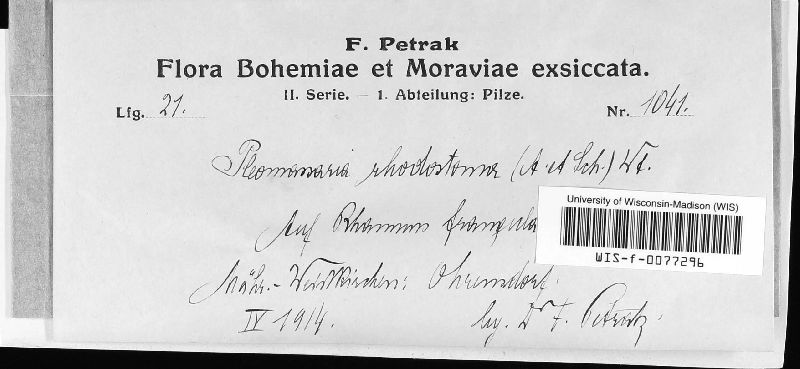 F. Petrak
Flora Bohemiae et Moraviae exsiccata.
II. Serie. – 1. Abteilung: Pilze.
Lfg. 21.
Nr. 1041.
Pleomassaria rhodostoma (A. et Sch.) Wt.
Auf Rhamnus frangula
University of Wisconsin-Madison (WIS)
WIS-f-0077296
Mähr.-Weisskirchen: Ohrensdorf.
IV 1914.
lg. Dr F. Petrak.